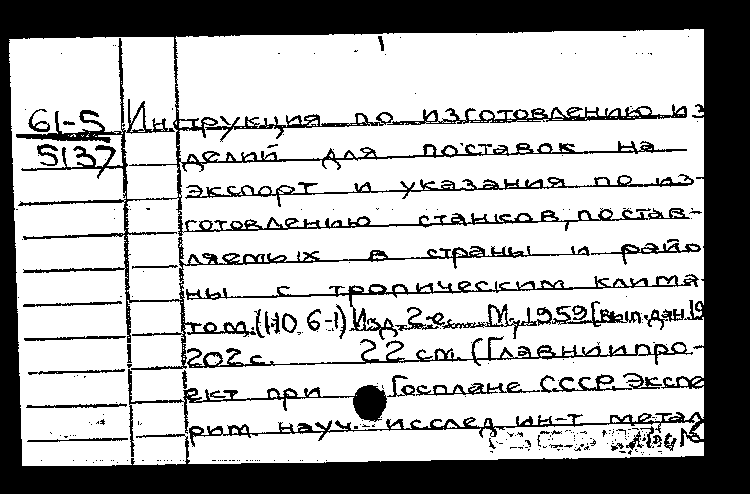 61-5
5137
Инструкция по изготовлению из
делий для поставок на
экспорт и указания по из-
готовлению станков, постав-
ляемых в страны и райо
ны с тропическим клима
том. (НО 6-1) Изд. 2-е. М., 1959 [вып. дан. 19
202 с. 22 см. (Главниипро-
ект при Госплане СССР. Экспе
рим. науч.-исслед. ин-т метал